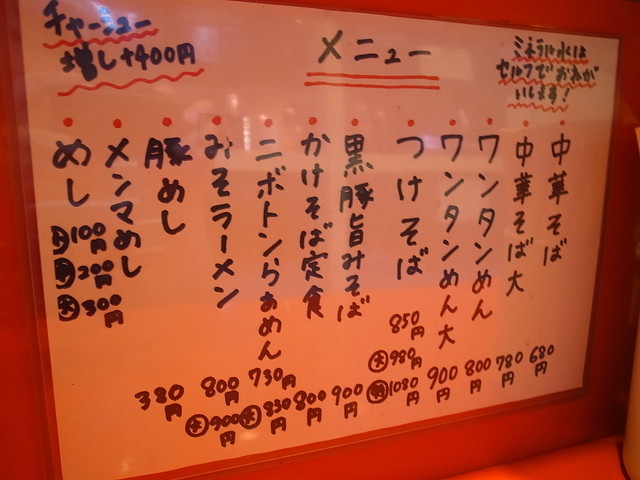 チャーシュー
増し+400円
メニュー
ミネラル水は
セルフでおねが
いします!
中華そば 680円
中華そば大 780円
ワンタンめん 800円
ワンタンめん大 900円
つけそば 850円
大 980円
1080円
黒豚旨みそば 900円
かけそば定食 800円
ニボトンらあめん 730円
大 830円
みそラーメン 800円
大 900円
豚めし 380円
メンマめし
めし
100円
200円
大 300円